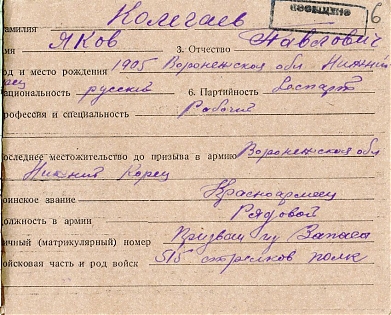 6
амилия Колегаев
мя Яков 3. Отчество Павлович
од и место рождения 1905 Воронежская обл Нижний
рец
ациональность русский 6. Партийность Беспарт
рофессия и специальность Рабочий
оследнее местожительство до призыва в армию Воронежская обл
Нижний Корец
оинское звание Красноармеец
олжность в армии Рядовой
ичный (матрикулярный) номер Призван из Запаса
ойсковая часть и род войск 515 стрелков полк